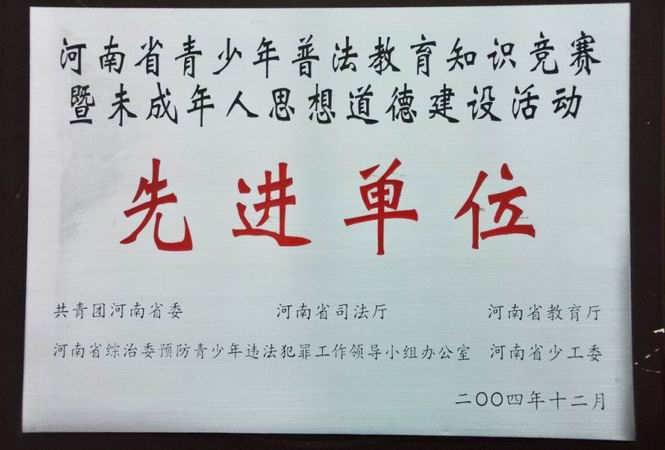 河南省青少年普法教育知识竞赛
暨未成年人思想道德建设活动
先进单位
共青团河南省委 河南省司法厅 河南省教育厅
河南省综治委预防青少年违法犯罪工作领导小组办公室 河南省少工委
二〇〇四年十二月